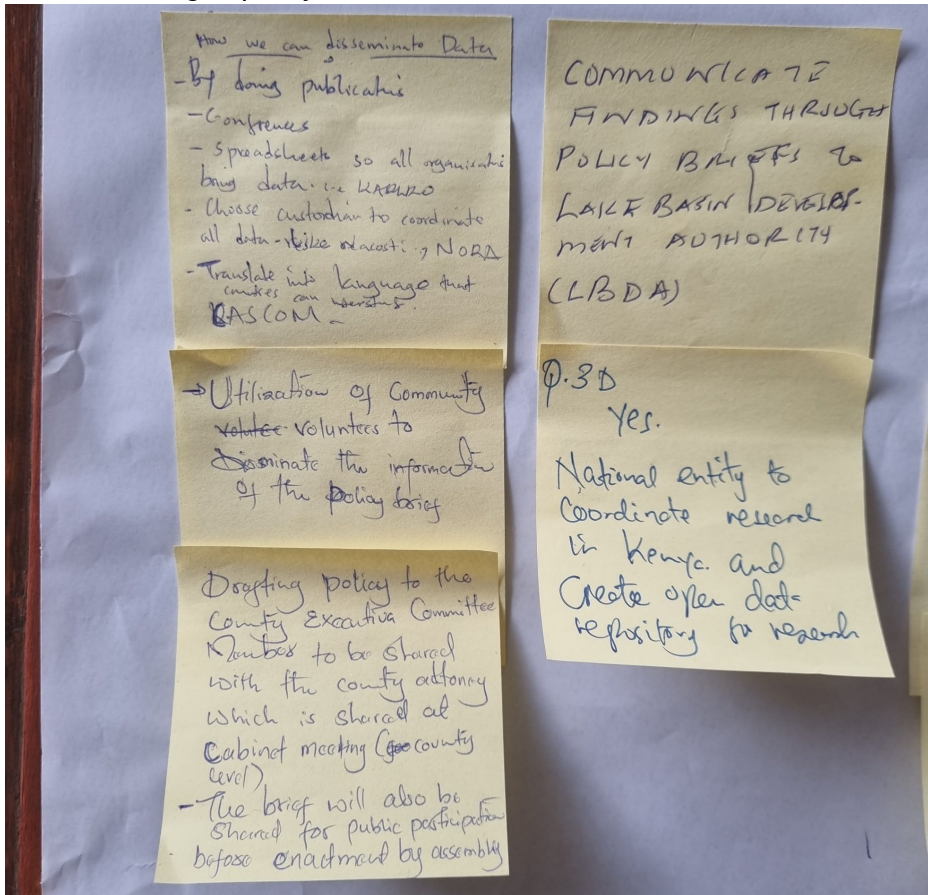 How we can disseminate Data
- By doing publications
- Confrences
- Spreadsheets so all organisations
bring data. i.e
- Choose custodian to coordinate
all data - NORA
- Translate into language that
can
LASCOM -
→ Utilization of Community
voluntees to
Disminate the information
of the policy brief
Drafting policy to the
County Executive Committee
Member to be shared
with the county attoney
which is shared at
Cabinet meeting ( county
level)
- The brief will also be
shared for public participation
before enactment by assembly
COMMUNICATE
FINDINGS THROUGH
POLICY BRIEFS TO
LAKE BASIN DEVELOP-
MENT AUTHORITY
(LBDA)
Q.3D
Yes.
National entity to
Coordinate research
in Kenya. and
Create open data
repository for research
1